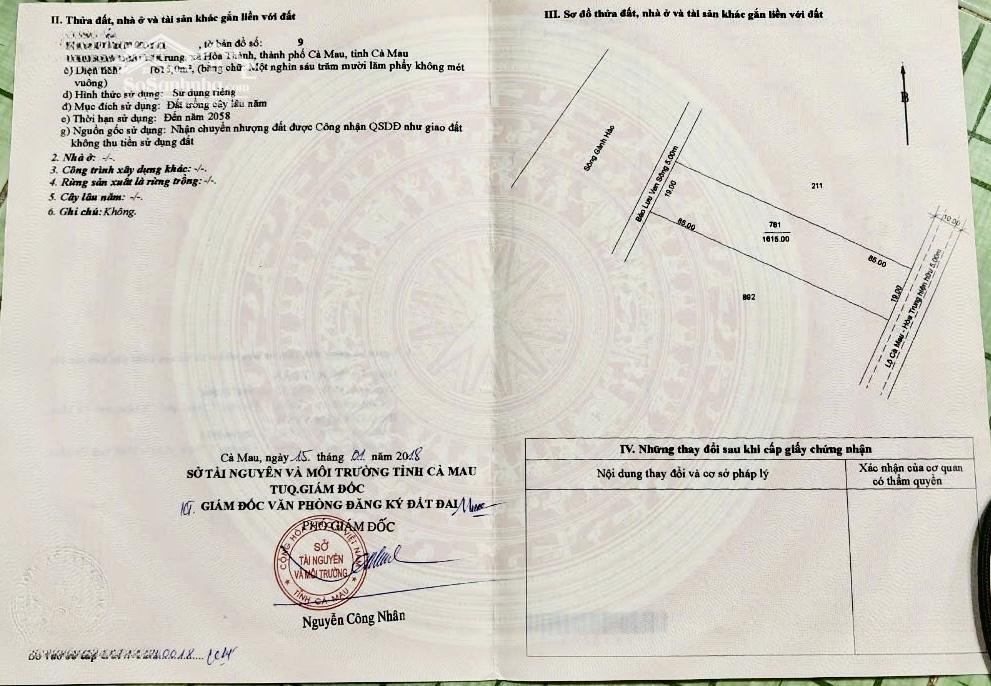 II. Thửa đất, nhà ở và tài sản khác gắn liền với đất
, tờ bản đồ số: 9
Trung, xã Hòa Thành, thành phố Cà Mau, tỉnh Cà Mau
c) Diện tích: 1615,0m², (bằng chữ: Một nghìn sáu trăm mười lăm phẩy không mét
vuông)
d) Hình thức sử dụng: Sử dụng riêng
đ) Mục đích sử dụng: Đất trồng cây lâu năm
e) Thời hạn sử dụng: Đến năm 2058
g) Nguồn gốc sử dụng: Nhận chuyển nhượng đất được Công nhận QSDĐ như giao đất
không thu tiền sử dụng đất
2. Nhà ở: -/-.
3. Công trình xây dựng khác: -/-.
4. Rừng sản xuất là rừng trồng: -/-.
5. Cây lâu năm: -/-.
6. Ghi chú: Không.
Cà Mau, ngày 15 tháng 01 năm 2018
SỞ TÀI NGUYÊN VÀ MÔI TRƯỜNG TỈNH CÀ MAU
TUQ.GIÁM ĐỐC
KT. GIÁM ĐỐC VĂN PHÒNG ĐĂNG KÝ ĐẤT ĐAI
PHÓ GIÁM ĐỐC
CỘNG HÒA VIỆT NAM
SỞ
TÀI NGUYÊN
VÀ MÔI TRƯỜNG
TỈNH CÀ MAU
Nguyễn Công Nhân
0018
III. Sơ đồ thửa đất, nhà ở và tài sản khác gắn liền với đất
B
Sông Gành Hào
Bảo Lưu Ven Sông 5.00m
19.00
85.00
211
761
1615.00
85.00
19.00
10.00
892
Lộ Cà Mau - Hòa Trung hiện hữu 5.00m
IV. Những thay đổi sau khi cấp giấy chứng nhận
Nội dung thay đổi và cơ sở pháp lý
Xác nhận của cơ quan
có thẩm quyền